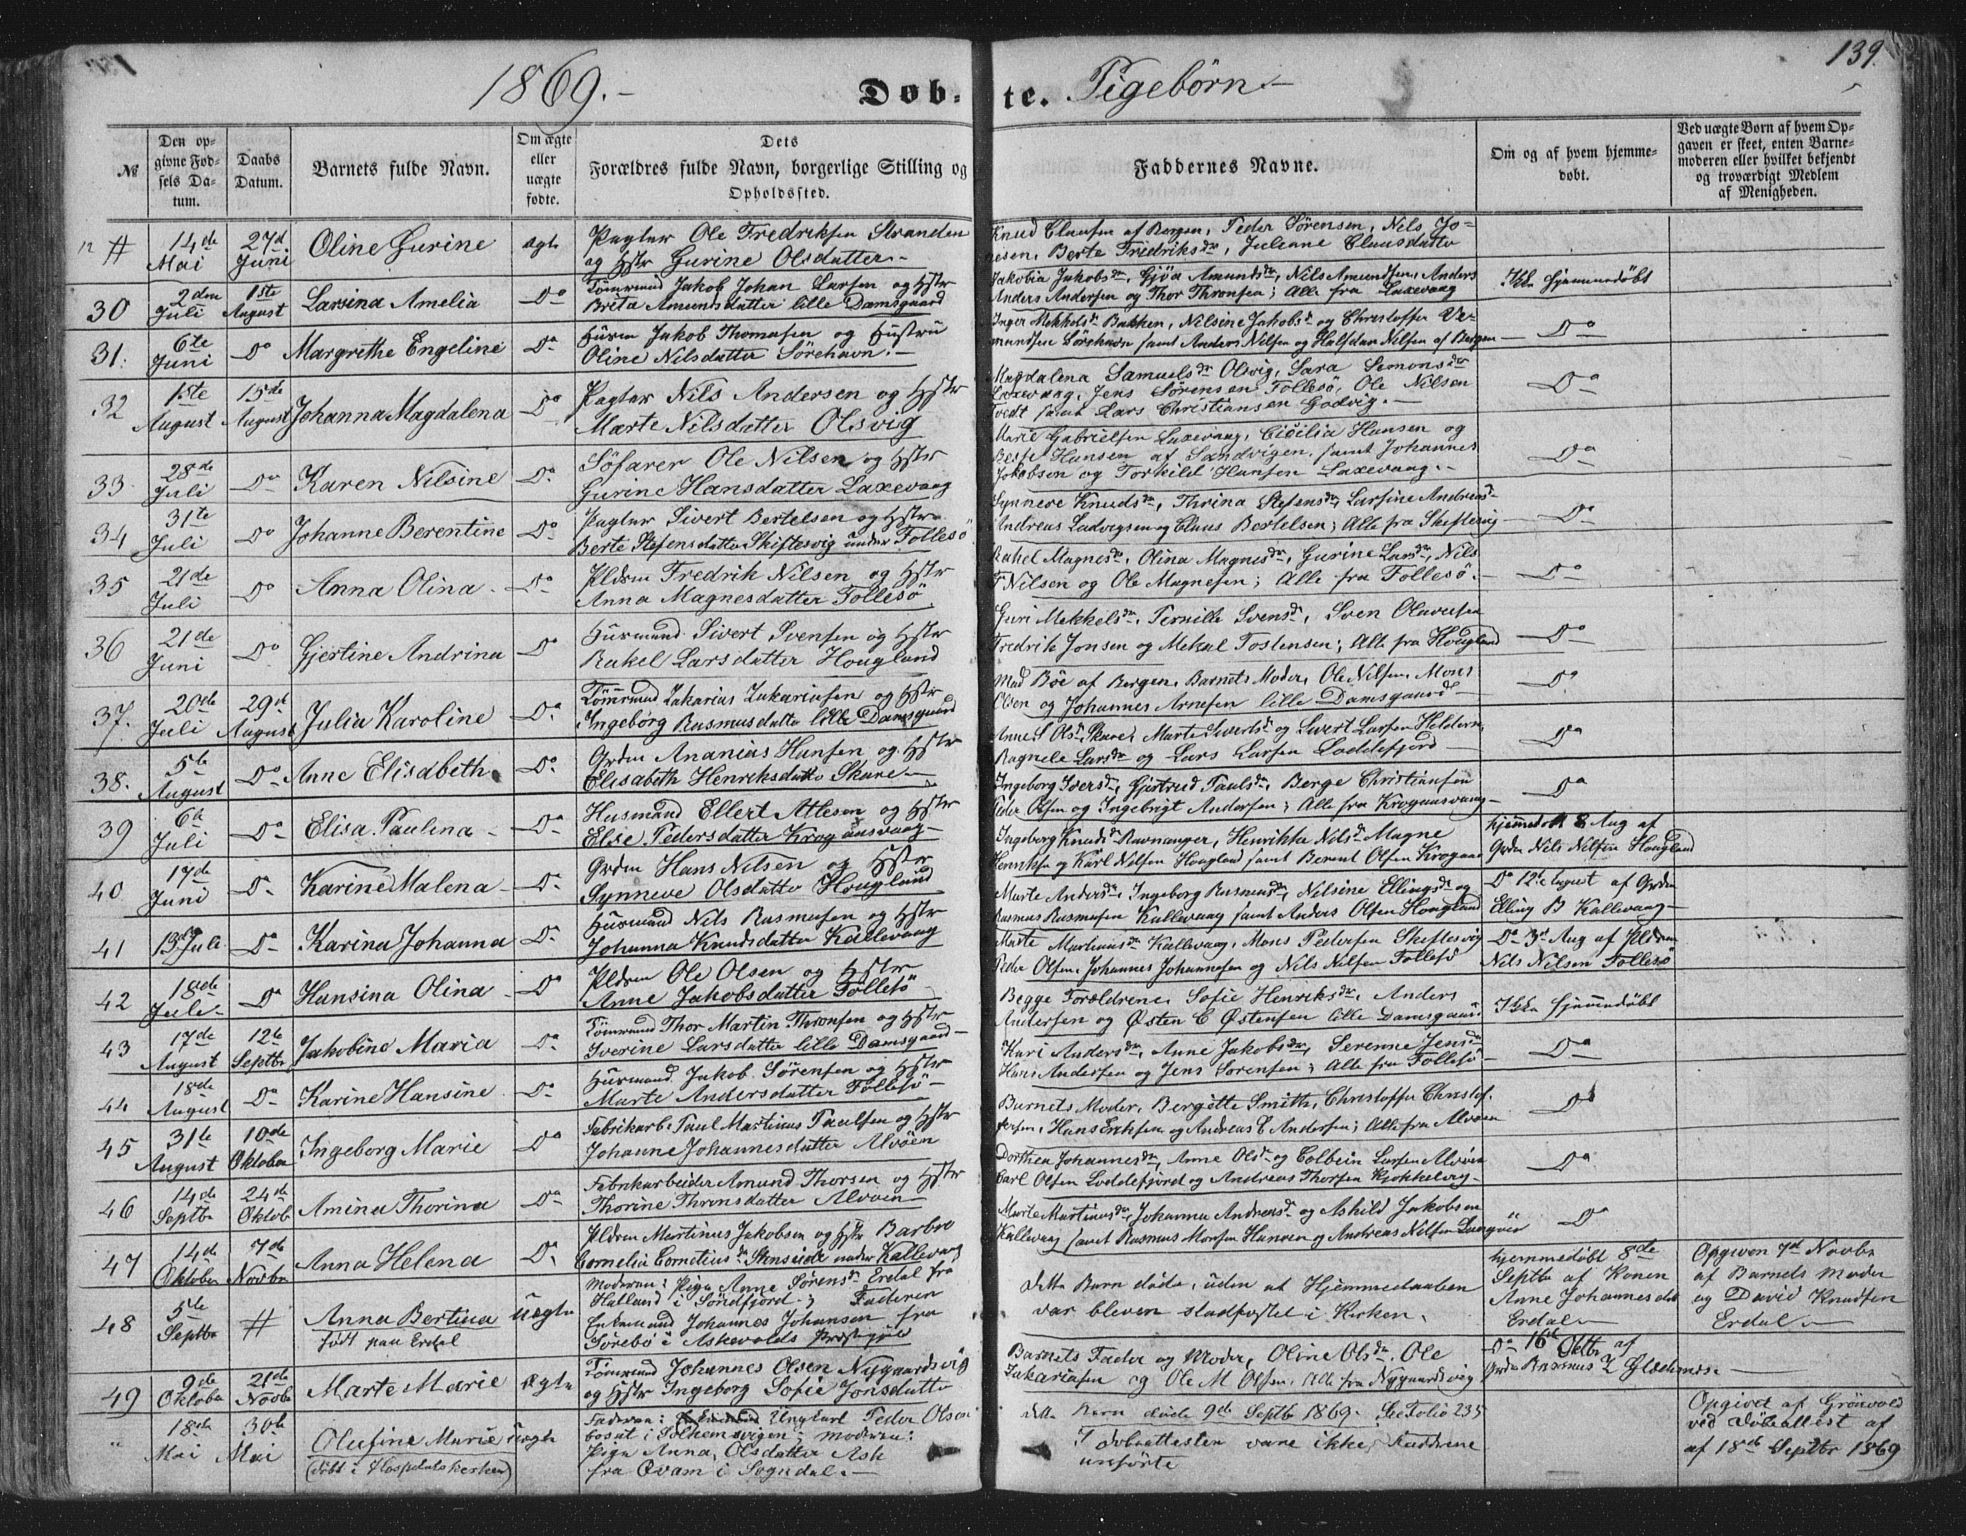 1869.-
Døb-
te. Pigebørn.-
139.
№
Den op-
givne Fød-
sels Da-
tum.
Daabs
Datum.
Barnets fulde Navn.
Om ægte
eller
uægte
fødte.
Dets
Forældres fulde Navn, borgerlige Stilling og
Opholdssted.
Faddernes Navne.
Om og af hvem hjemme-
døbt.
Ved uægte Børn af hvem Op-
gaven er skeet, enten Barne-
moderen eller hvilket bekjendt
og troværdigt Medlem
af Menigheden.
# 14de Mai 27d Juni Oline Gurine ægte
Pagtar Ole Fredriksen Stranden
og Hstr Gurine Olsdatter.-
Knud Clausen af Bergen, Peder Sørensen, Nils Jo-
nesen, Berte Fredriksdr, Julianne Clausdatter
30 2den Juli 1ste August Larsina Amelia Do
Tømrmnd Jakob Johan Larsen og Hstr
Brita Amundsdatter lille Damsgaard
Jakobia Jakobsdr, Gjøa Amundsdr, Nils Amundsen, Anders
Anders Andersen og Thor Thronsen; Alle fra Laxevaag
Ikke hjemmedøbt
31. 6te Juni Do Margrethe Engeline Do
Huusm Jakob Thomasen og Hustru
Oline Nilsdatter Sørehavn.-
Inger Mekkelsdr Bakken, Nilsine Jakobsdr og Christoffer
mundsen Sørehavn samt Anders Nilsen og Halfdan Nilsen af Bergen
Do
32 1ste August 15de August Johanna Magdalena Do
Pagtar Nils Andersen og Hstr
Marte Nilsdatter Olsvig
Magdalena Samuelsdr Olsvig, Sara Semonsdr
Laxevaag, Jens Sørensen Follesø, Ole Nilsen
Tvedt samt Lars Christiansen Godvig.-
Do
33 28de Juli Do Karen Nilsine Do
Søfarer Ole Nilsen og Hstr
Gurine Hansdatter Laxevaag
Marie Gabrielsen Laxevaag, Cicilia Hansen og
Hansen af Sandvigen, samt Johannes
Jakobsen og Torkild Hansen Laxevaag.-
Do
34 31te Juli Do Johanne Berentine Do
Pagtar Sivert Bertelsen og Hstr
Berte Stefensdatter Skiftesvig under Follesø
Synneve Knudsdr, Thrina Stefensdr, Larsine Andreasdr
Andreas Ludvigsen og Claus Bertelsen; Alle fra Skiftesvig
Do
35 21de Juli Do Anna Olina. Do
Pldrm Fredrik Nilsen og Hstr
Anna Magnesdatter Follesø
Rakel Magnesdr, Olina Magnusdr, Gurine Larsdr, Nils
Nilsen og Ole Magnesen; Alle fra Follesø.-
Do
36 21de Juni Do Gjertine Andrina Do
Huusmnd Sivert Svensen og Hstr
Rakel Larsdatter Hougland
Guri Mekkelsdr, Pernille Svensdr, Sven Olavesen
Fredrik Jonsen og Mekal Tostensen; Alle fra Hougland
Do
37. 20de Juli 29de August Julia Karoline Do
Tømrmnd Zakarias Zakariasen og Hstr
Ingeborg Rasmusdatter lille Damsgaard
Mad Böe af Bergen, Barnets Moder, Ole Nilsen, Mons
Olsen og Johannes Arnesen lille Damsgaard
Do
38. 5te August Do Anne Elisabeth Do
Grdm Ananias Hansen og Hstr
Elisabeth Henriksdatter Skare-
Anne Olsdr Skare, Marte Siverdsdr og Sivert Larsen Heldern,
Ragnele Larsdr og Lars Larsen Loddefjord-
Do
39 6te Juli Do Elisa Paulina Do
Husmand Ellert Atlesen og Hstr
Else Pedersdatter Krogaasvaag-
Ingeborg Iversdr, Gjertrud Paulsdr, Berge Christiansen
Peder Olsen og Ingebrigt Andersen; Alle fra Krogaasvaag-
Do
40 17de Juni Do Karine Malena Do
Grdm Hans Nilsen og Hstr
Synneve Olsdatter Hougland
Ingeborg Knudsdr Ravnanger, Henrikke Nilsdr Magne
Henriksen og Karl Nilsen Hougland samt Berent Olsen Krogaas
hjemmedøbt 8 Aug af
Grdm Nils Nilsen Hougland
41 13de Juli Do Karina Johanna Do
Huusmand Nils Rasmusen og Hstr
Johanna Knudsdatter Kallevaag
Marte Andersdr, Ingeborg Rasmusdr, Nilsine Ellingsdr og
Rasmus Rasmusen Kallevaag samt Anders Olsen Hougland
Do 12te August af Grdm
Elling B Kallevaag-
42 18de Juli- Do Hansina Olina Do
Pldrm Ole Olsen og Hstr
Anne Jakobsdatter Follesø
Marte Martinusdr Kallevaag, Mons Pedersen Skiftesvig
Peder Olsen, Johannes Johannesen og Nils Nilsen Follesø
Do 3de Aug af Pldrm
Nils Nilsen Follesø
43 17de August 12te Septbr Jakobine Maria Do
Tømrmnd Thor Martin Thronsen og Hstr
Iverine Larsdatter lille Damsgaard-
Begge Forældrene, Sofie Henriksdr, Anders
Andersen og Østen E Østensen lille Damsgaard
Ikke hjemmedøbt
44 18de August Do Karine Hansine Do
Huusmand Jakob Sørensen og Hstr
Marte Andersdatter Follesø-
Kari Andersdr, Anne Jakobsdr, Serenne Jensdr
Hans Andersen og Jens Sørensen; Alle fra Follesø-
Do
45 31te August 10de Oktober Ingeborg Marie Do
Fabrikarb. Paul Martinus Paulsen og Hstr
Johanne Johannesdatter Alvøen
Barnets Moder, Bergitte Smith, Christoffer Christof-
fersen, Hans Eriksen og Andreas C Andersen; Alle fra Alvøen
Do
46 14de Septbr 24de Oktob Amina Thorina Do
Fabrikarbeider Amund Thorsen og Hstr
Thorine Thronsdatter Alvøen-
Dorthea Johannesdr, Anne Olsdr og Colbein Larsen Alvøen
Carl Olsen Loddefjord og Andreas Thorsen Kjøkkelvig-
Do
47 14de Oktober 7de Novbr Anna Helena Do
Pldrm Martinus Jakobsen og Hstr Barbro
Cornelia Corneliusdr Stenseide under Kallevaag
Marte Martinusdr, Johanna Andreasdr og Ashild Jakobsen
Kallevaag samt Rasmus Monsen Hanøen og Andreas Nilsen
Do
48 5te Septbr # Anna Bertina Uægte
født paa Erdal
Moderen: Pige Anne Sørensdr Erdal fra
Halland i Søndfjord.-; Faderen
Enkemand Johannes Johansen fra
Sørebø i Askevolds Prestegjeld
dette Barn døde, uden at Hjemmedaaben
var bleven stadfæstet i Kirken.
hjemmedøbt 8de
Septbr af Konen
Anne Johannesdatt
Erdal
Opgiven 7de Novbr
af Barnets Moder
og David Knudsen
Erdal
49 9de Oktober 21de Novbr Marte Marie ægte
Tømrmnd Johannes Olsen Nygaardsvig
og Hstr Ingeborg Sofie Jonsdatter
Barnets Fader og Moder, Oline Olsdr, Ole
Zakariasen og Ole M Olsen, Alle fra Nygaardsvig
Do 16de Oktbr af
Grdm Rasmus
" 18de Mai 30te Mai Olufine Marie uægte
(døbt i Hospitalskirken)
Faderen: Ungkarl Peder Olsen
bosat i Solhemsvigen; Moderen:
Pige Anna Olsdatter Ask
fra Qvam i Sogndal.-
dette Barn døde 9de Septbr 1869. See Folio 235
I døbeattesten vare ikke Fadderne
anførte
Opgivet af Grönvold
ved døbeattest af
af 18de Septbr 1869